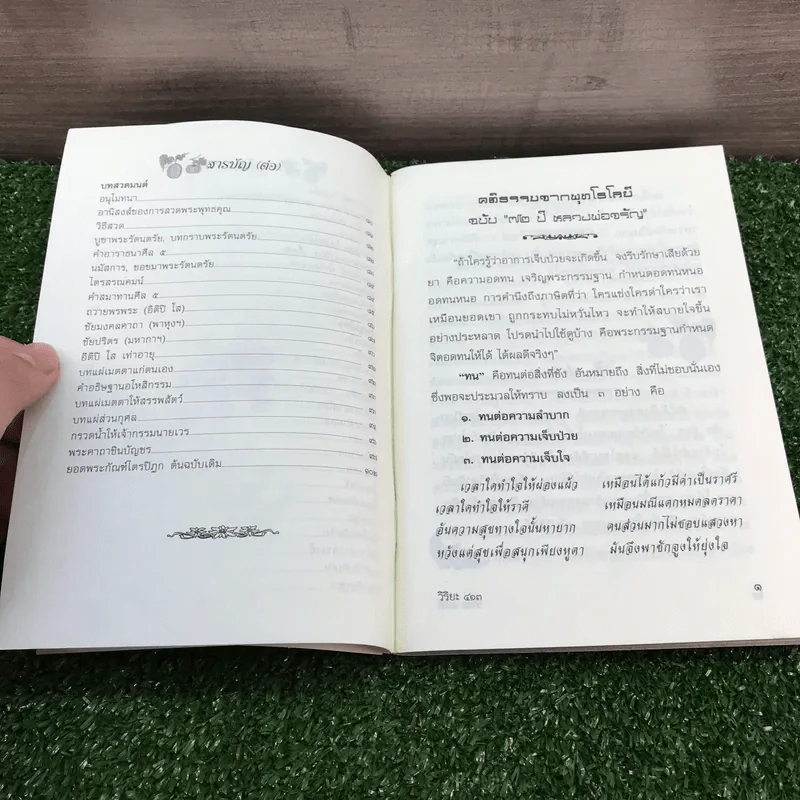 สารบัญ (ต่อ)
บทสวดมนต์
อนุโมทนา
อานิสงส์ของการสวดพระพุทธคุณ
วิธีสวด
บูชาพระรัตนตรัย, บทกราบพระรัตนตรัย
คำอาราธนาศีล ๕
นมัสการ, ขอขมาพระรัตนตรัย
ไตรสรณคมน์
คำสมาทานศีล ๕
ถวายพรพระ (อิติปิ โส)
ชัยมงคลคาถา (พาหุงฯ)
ชัยปริตร (มหากาฯ)
อิติปิ โส เท่าอายุ
บทแผ่เมตตาแก่ตนเอง
คำอธิษฐานอโหสิกรรม
บทแผ่เมตตาให้สรรพสัตว์
บทแผ่ส่วนกุศล
กรวดน้ำให้เจ้ากรรมนายเวร
พระคาถาชินบัญชร
ยอดพระกัณฑ์ไตรปิฎก ต้นฉบับเดิม
คติธรรมจากพุทโธโลยี
ฉบับ "๗๒ ปี หลวงพ่อจรัญ"
"ถ้าใครรู้ว่าอาการเจ็บป่วยจะเกิดขึ้น จงรีบรักษาเสียด้วย
ยา คือความอดทน เจริญพระกรรมฐาน กำหนดอดทนหนอ
อดทนหนอ การคำนึงถึงภาษิตที่ว่า ใครแช่งใครด่าใครว่าเรา
เหมือนยอดเขา ถูกกระทบไม่หวั่นไหว จะทำให้สบายใจขึ้น
อย่างประหลาด โปรดนำไปใช้ดูบ้าง คือพระกรรมฐานกำหนด
จิตอดทนให้ได้ ได้ผลดีจริงๆ"
"ทน" คือทนต่อสิ่งที่ชัง อันหมายถึง สิ่งที่ไม่ชอบนั่นเอง
ซึ่งพอจะประมวลให้ทราบ ลงเป็น ๓ อย่าง คือ
๑. ทนต่อความลำบาก
๒. ทนต่อความเจ็บป่วย
๓. ทนต่อความเจ็บใจ
เวลาใดทำใจให้ผ่องแผ้ว เหมือนได้แก้วมีค่าเป็นราศรี
เวลาใดทำใจให้ราคี เหมือนมณีแตกหมดลดราคา
อันความสุขทางใจนั้นหายาก คนส่วนมากไม่ชอบแสวงหา
หวังแต่สุขเพื่อสนุกเพียงหูตา มันจึงพาชักจูงให้ยุ่งใจ
วิริยะ ๔๑๓
๑